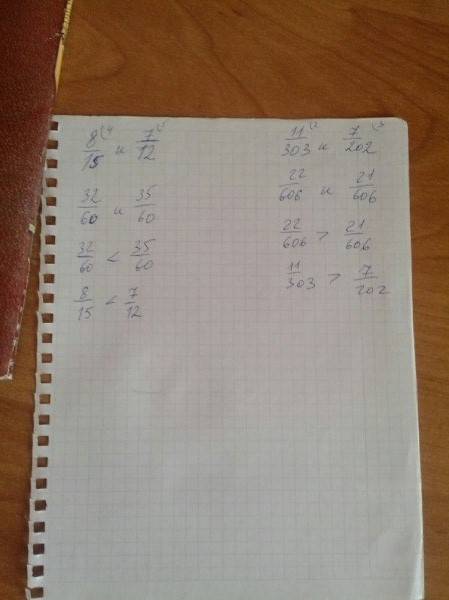 8/15 \4 и 7/12 \5
32/60 и 35/60
32/60 < 35/60
8/15 < 7/12
11/303 \2 и 7/202 \3
22/606 и 21/606
22/606 > 21/606
11/303 > 7/202